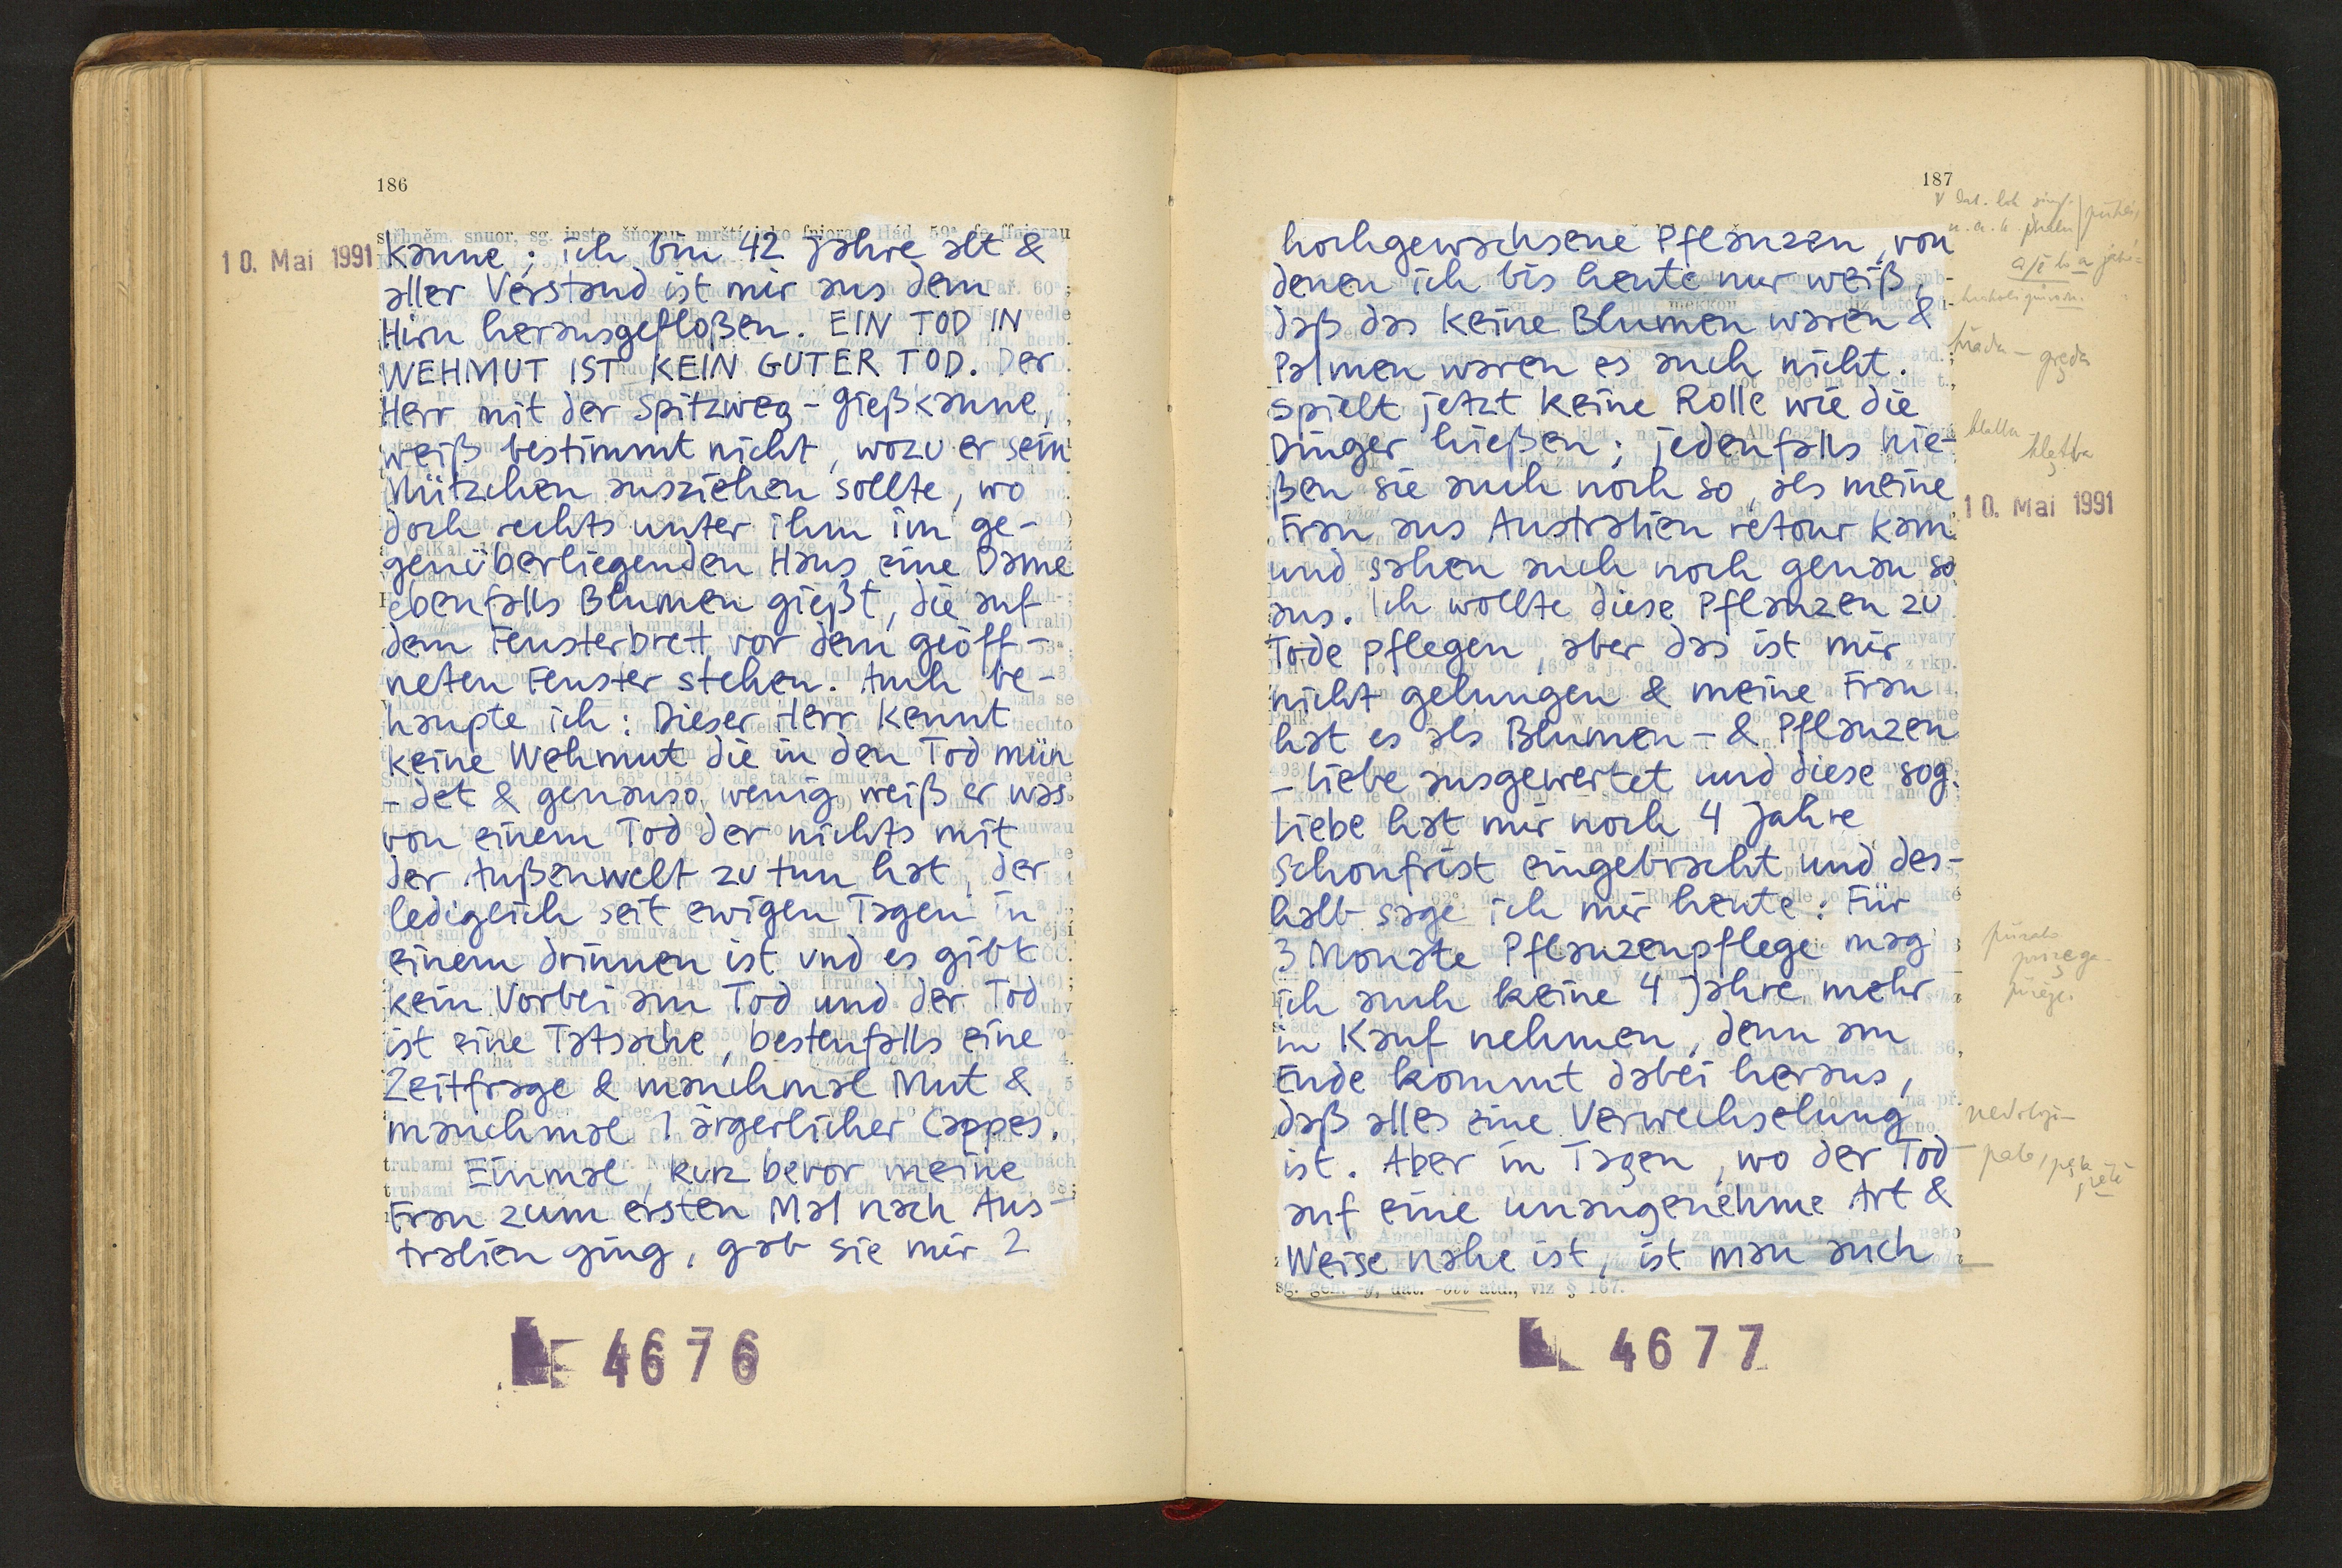 186
sg. instr.
10. Mai 1991
kanne; ich bin 42 Jahre alt &
aller Verstand ist mir aus dem
Hirn herausgefloßen. EIN TOD IN
WEHMUT IST KEIN GUTER TOD. Der
Herr mit der Spitzweg-Gießkanne,
weiß bestimmt nicht, wozu er sein
Mützchen ausziehen sollte, wo
doch rechts unter ihm im ge-
genüberliegenden Haus eine Dame
ebenfalls Blumen gießt, die auf
dem Fensterbrett vor dem geöff-
neten Fenster stehen. Auch be-
haupte ich: Dieser Herr kennt
keine Wehmut die in den Tod mün
- det & genauso wenig weiß er was
von einem Tod der nichts mit
der Außenwelt zu tun hat, der
ledigeich seit ewigen Tagen in
einem drinnen ist und es gibt
kein Vorbei am Tod und der Tod
ist eine Tatsache, bestenfalls eine
Zeitfrage & manchmal Mut &
manchmal 1 ärgerlicher Cappes.
Einmal, kurz bevor meine
Frau zum ersten Mal nach Aus-
tralien ging, gab sie mir 2
4676
187
hochgewachsene Pflanzen, von
denen ich bis heute nur weiß,
daß das keine Blumen waren &
Palmen waren es auch nicht.
Spielt jetzt keine Rolle wie die
Dinger hießen; jedenfalls hie-
ßen sie auch noch so, als meine
Frau aus Australien retour kam
und sahen auch noch genau so
aus. Ich wollte diese Pflanzen zu
Tode pflegen, aber das ist mir
nicht gelungen & meine Frau
hat es als Blumen- & Pflanzen
- Liebe ausgewertet und diese sog.
Liebe hat mir noch 4 Jahre
Schonfrist eingebracht und des-
halb sage ich mir heute: Für
3 Monate Pflanzenpflege mag
ich auch keine 4 Jahre mehr
in Kauf nehmen, denn am
Ende kommt dabei heraus,
daß alles eine Verwechselung
ist. Aber in Tagen, wo der Tod
auf eine unangenehme Art &
Weise nahe ist, ist man auch
sg. gen. -y, dat. -ovi atd., viz § 167.
10. Mai 1991
4677